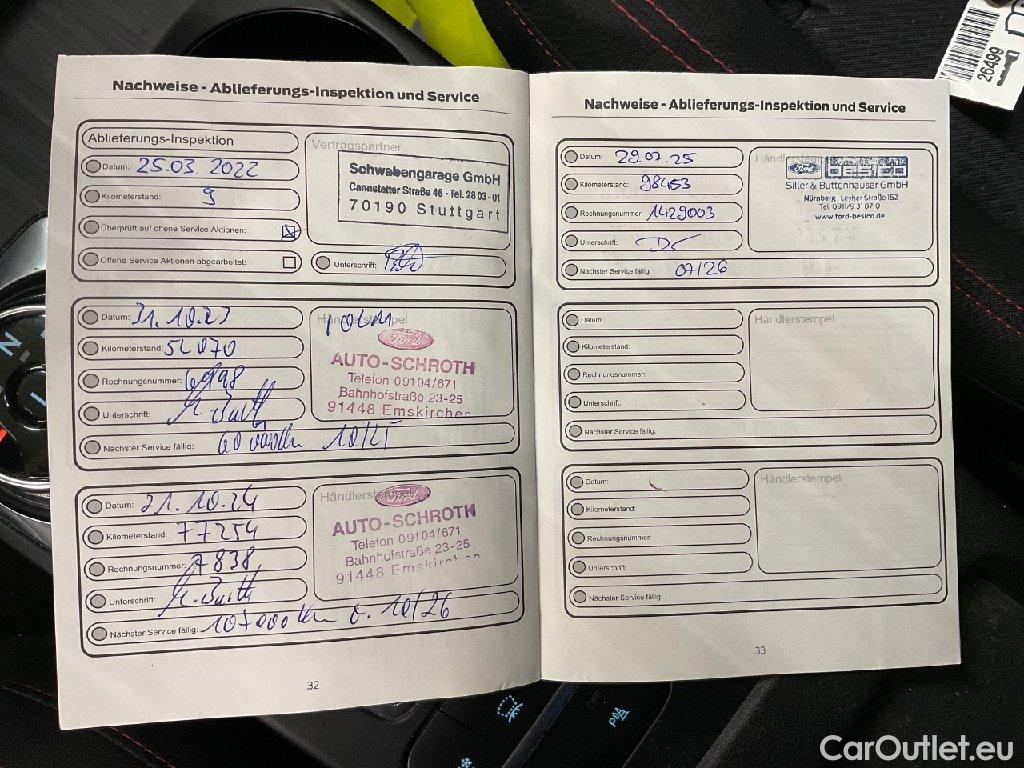 26499
Nachweise - Ablieferungs-Inspektion und Service
Ablieferungs-Inspektion
Datum: 25.03.2022
Kilometerstand: 9
Überprüft auf offene Service Aktionen:
Offene Service Aktionen abgearbeitet:
Vertragspartner
Schwabengarage GmbH
Cannstatter Straße 46 · Tel. 28 03 - 01
70190 Stuttgart
Unterschrift:
Datum: 31.10.23
Kilometerstand:
Rechnungsnummer: 6998
Unterschrift:
Nächster Service fällig:
Händlerstempel
Ford
AUTO-SCHROTH
Telefon 09104/671
Bahnhofstraße 23-25
91448 Emskirchen
Datum: 21.10.24
Kilometerstand: 77254
Rechnungsnummer: 7838
Unterschrift:
Nächster Service fällig: 107000 km o. 10/26
Händlerstempel
Ford
AUTO-SCHROTH
Telefon 09104/671
Bahnhofstraße 23-25
91448 Emskirchen
32
Nachweise - Ablieferungs-Inspektion und Service
Datum: 29.07.25
Kilometerstand: 98453
Rechnungsnummer: 1429003
Unterschrift:
Nächster Service fällig: 07/26
Ford besico
Siller & Buttenhauser GmbH
Nürnberg · Leyher Straße 152
www.ford-besico.de
Datum:
Kilometerstand:
Rechnungsnummer:
Unterschrift:
Nächster Service fällig:
Händlerstempel
Datum:
Kilometerstand:
Rechnungsnummer:
Unterschrift:
Nächster Service fällig:
Händlerstempel
33
CarOutlet.eu